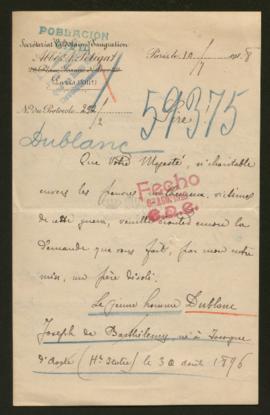 POBLACION
Secrétariat Catholique d'Emigration
Abbé J. Pélegat
Paris le 10/7 1918
N. du Protocole 292/2
59375
Sire,
Dublanc
Que Votre Majesté, si charitable
envers les pauvres malheureux, victimes
de cette guerre, veuille écouter encore la
demande que vous fait, par mon entre
mise, un frère désolé.
Fecho
Le jeune homme Dublanc
Joseph de Barthélemy, né à
d'Apple (Hte Savoie) le 30 août 1896